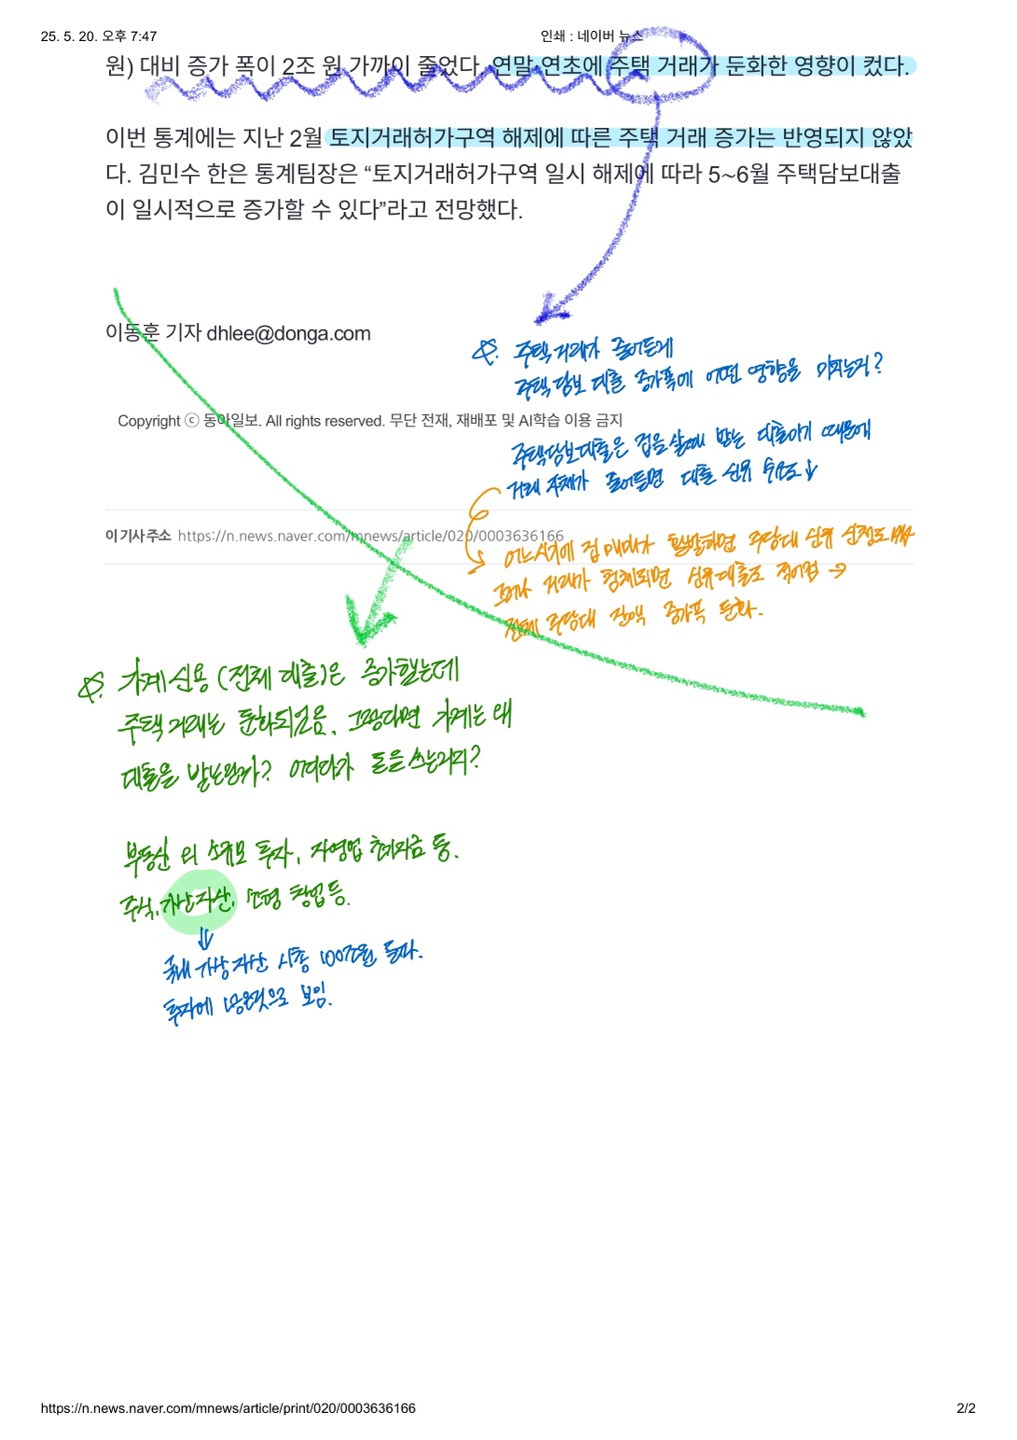 25. 5. 20. 오후 7:47
인쇄 : 네이버 뉴스
원) 대비 증가 폭이 2조 원 가까이 줄었다. 연말·연초에 주택 거래가 둔화한 영향이 컸다.
이번 통계에는 지난 2월 토지거래허가구역 해제에 따른 주택 거래 증가는 반영되지 않았
다. 김민수 한은 통계팀장은 “토지거래허가구역 일시 해제에 따라 5~6월 주택담보대출
이 일시적으로 증가할 수 있다”라고 전망했다.
이동훈 기자 dhlee@donga.com
Q. 주택 거래가 줄어든게
주택 담보 대출 증가폭에 어떤 영향을 미치는거?
Copyright ⓒ 동아일보. All rights reserved. 무단 전재, 재배포 및 AI학습 이용 금지
주택담보대출은 집을 살때 받는 대출이기 때문에
거래 자체가 줄어들면 대출 신규 수요도 ↓
이 기사주소 https://n.news.naver.com/mnews/article/020/0003636166
어느시기에 집 매매가 활발하면 주담대 신규 신청도
거래가 침체되면 신규대출도 적어짐 →
전체 주담대 잔액 증가폭 둔화.
Q. 가계신용 (전체 대출)은 증가했는데
주택거래는 둔화되었음. 그렇다면 가계는 왜
대출을 받는걸까? 어디다가 돈을 쓰는거지?
부동산 외 소규모 투자, 자영업 초기자금 등.
주식, 가상자산, 소형 창업 등.
국내 가상자산 시총 100조원 돌파.
투자에 넣은것으로 보임.
https://n.news.naver.com/mnews/article/print/020/0003636166
2/2